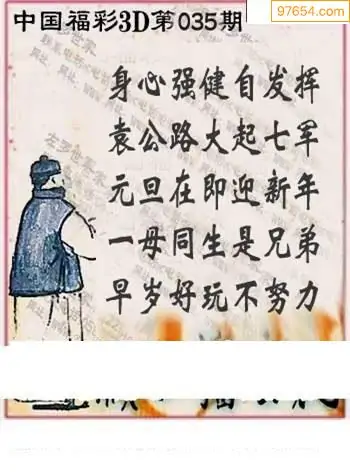 中国福彩3D第035期
97654.com
身心强健自发挥
袁公路大起七军
元旦在即迎新年
一母同生是兄弟
早岁好玩不努力